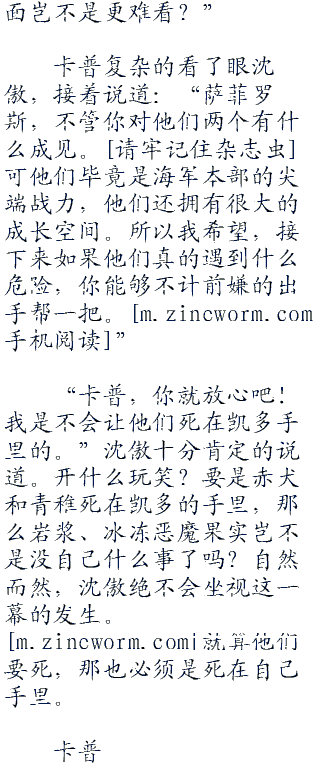 面岂不是更难看？”
卡普复杂的看了眼沈
傲，接着说道：“萨菲罗
斯，不管你对他们两个有什
么成见。[请牢记住杂志虫]
可他们毕竟是海军本部的尖
端战力，他们还拥有很大的
成长空间。所以我希望，接
下来如果他们真的遇到什么
危险，你能够不计前嫌的出
手帮一把。[m.zincworm.com
手机阅读]”
“卡普，你就放心吧！
我是不会让他们死在凯多手
里的。”沈傲十分肯定的说
道。开什么玩笑？要是赤犬
和青稚死在凯多的手里，那
么岩浆、冰冻恶魔果实岂不
是没自己什么事了吗？自然
而然，沈傲绝不会坐视这一
幕的发生。
[m.zincworm.com]就算他们
要死，那也必须是死在自己
手里。
卡普